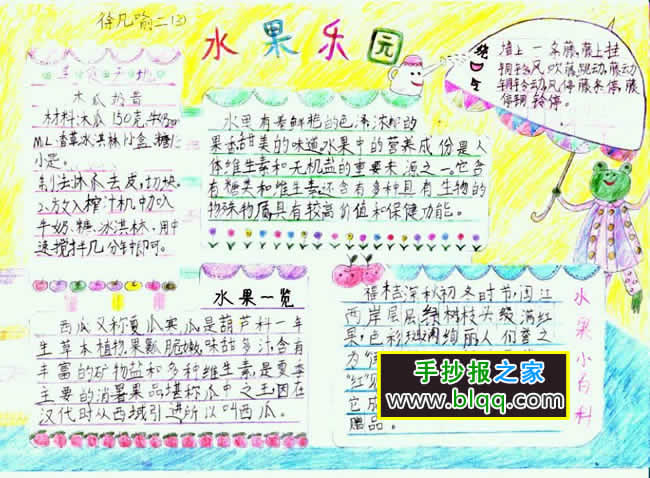 徐凡喻二(2)
水果乐园
绕口令
墙上一条藤,藤上挂
铜铃,风吹藤跳动,藤动
铜铃动,风停藤条停,藤
停铜铃停。
美食天地
木瓜奶昔
材料:木瓜150克,牛奶
ML,香草冰淇林1小盒,糖1
小匙。
去皮,切块。
2.放入榨汁机,
牛奶、糖、冰淇林,用中
速搅拌几分钟即可。
水果有着鲜艳的色泽,浓郁的
果香,甜美的味道,水果中的营养成份是人
体维生素和无机盐的重要来源之一,它含
有糖类和维生素,还含有多种具有生物的
特殊物质,具有较高价值和保健功能。
水果一览
西瓜又称夏瓜、寒瓜,是葫芦科一年
生草本植物,果瓤脆嫩,味甜多汁,含有
丰富的矿物盐和多种维生素,是夏季
主要的消暑果品,堪称瓜中之王,因在
汉代时从西域引进,所以叫西瓜。
水果小百科
福桔深秋初冬时节,闽江
两岸层层绿树枝头缀满红
果,色彩斑斓绚丽,人们誉之
为
红
它成
赠品。
手抄报之家
www.blqq.com